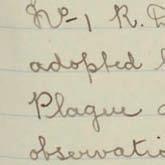 No 1 R.
adopted
Plague
observatio